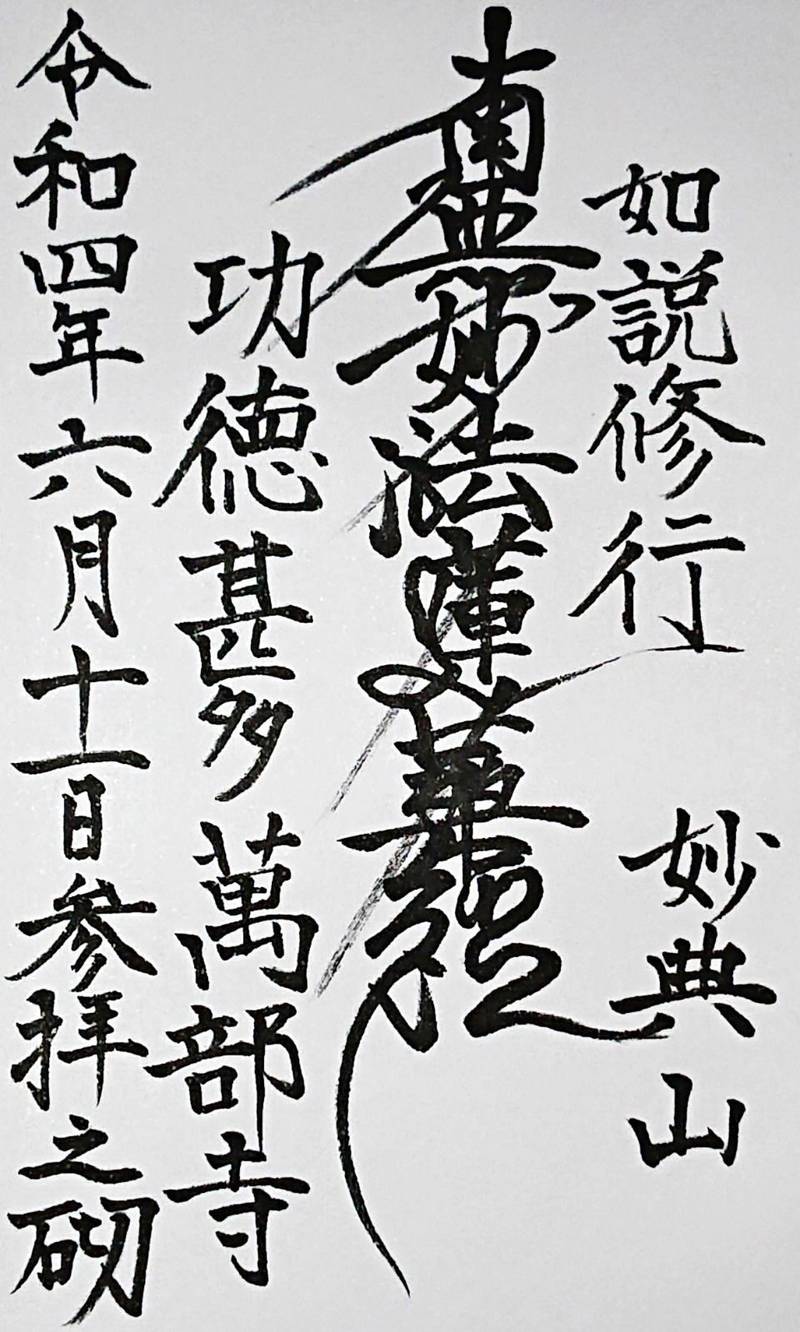 如説修行 妙典山
南無妙法蓮華経
功徳甚多 萬部寺
令和四年六月十一日参拝之砌